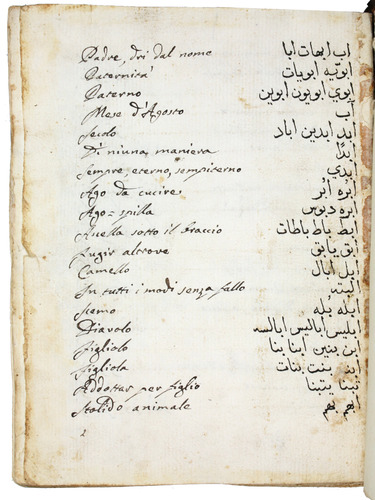 Padre, dri dal nome اب ابهات ابا
Paternità ابويّه ابويات
Paterno ابوي ابويون ابوين
Mese d'Agosto آب
Secolo ابد ابدين اباد
Di niuna maniera ابدًا
Sempre, eterno, sempiterno ابدي
Ago da cucire ابره اُبَر
Ago = spilla ابره دبوس
Auella sotto il braccio ابط باطات
Fugir altrove ابق يابق
Camello ابل ابال
In tutti i modi senza fallo البته
Scemo ابله بُله
Diavolo ابليس اباليس ابالسه
Figliolo ابن بنين ابنا
Figliola بنت بنات
Addottar per figlio
Stolido animale ابهم بهم
2